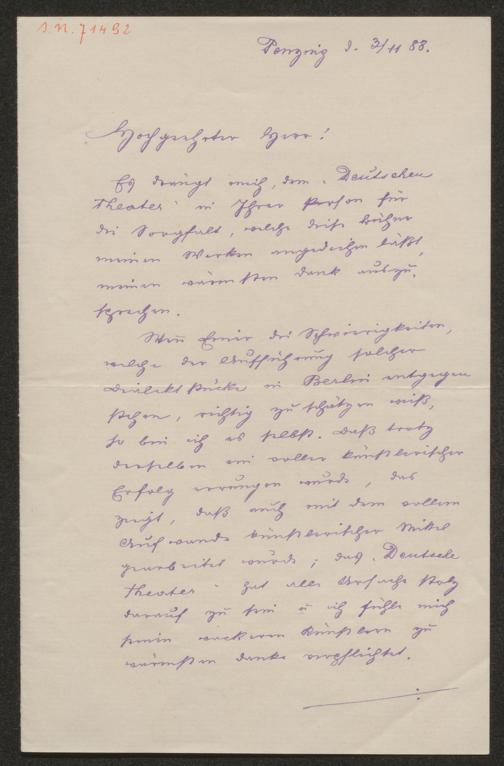 I.N. 71492
Penzing d. 3/11 88.
Hochgeehrter Herr!
Es drängt mich, dem „Deutschen
Theater" in Ihrer Person für
die Sorgfalt, welche diese Bühne
meinen Werken angedeihen läßt,
meinen wärmsten Dank auszu-
sprechen.
Wenn Einer die Schwierigkeiten,
welche der Aufführung solcher
Dialektstücke in Berlin entgegen
stehen, richtig zu schätzen weiß,
so bin ich es selbst. Daß trotz
derselben ein voller künstlerischer
Erfolg errungen wurde, das
zeigt, daß auch mit dem vollem
Aufwande künstlerischer Mittel
gearbeitet wurde; das „Deutsche
Theater" hat alle Ursache stolz
darauf zu sein u ich fühle mich
seinen wackeren Künstlern zu
wärmsten Danke verpflichtet.